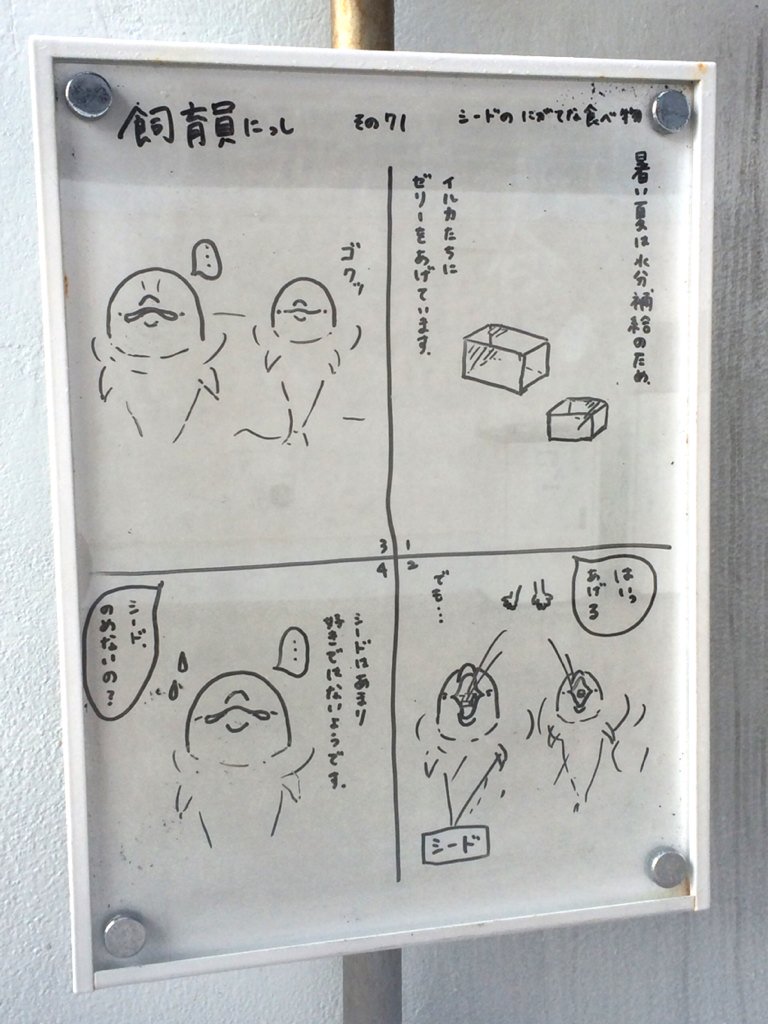 飼育員にっし
その71
シードの にがてな食べ物
暑い夏は水分補給のため、
イルカたちに
ゼリーをあげています。
1
はいっ
あげる
でも…
シード
2
ゴクッ
…
3
シードはあまり
好きではないようです。
…
シード、
のめないの?
4